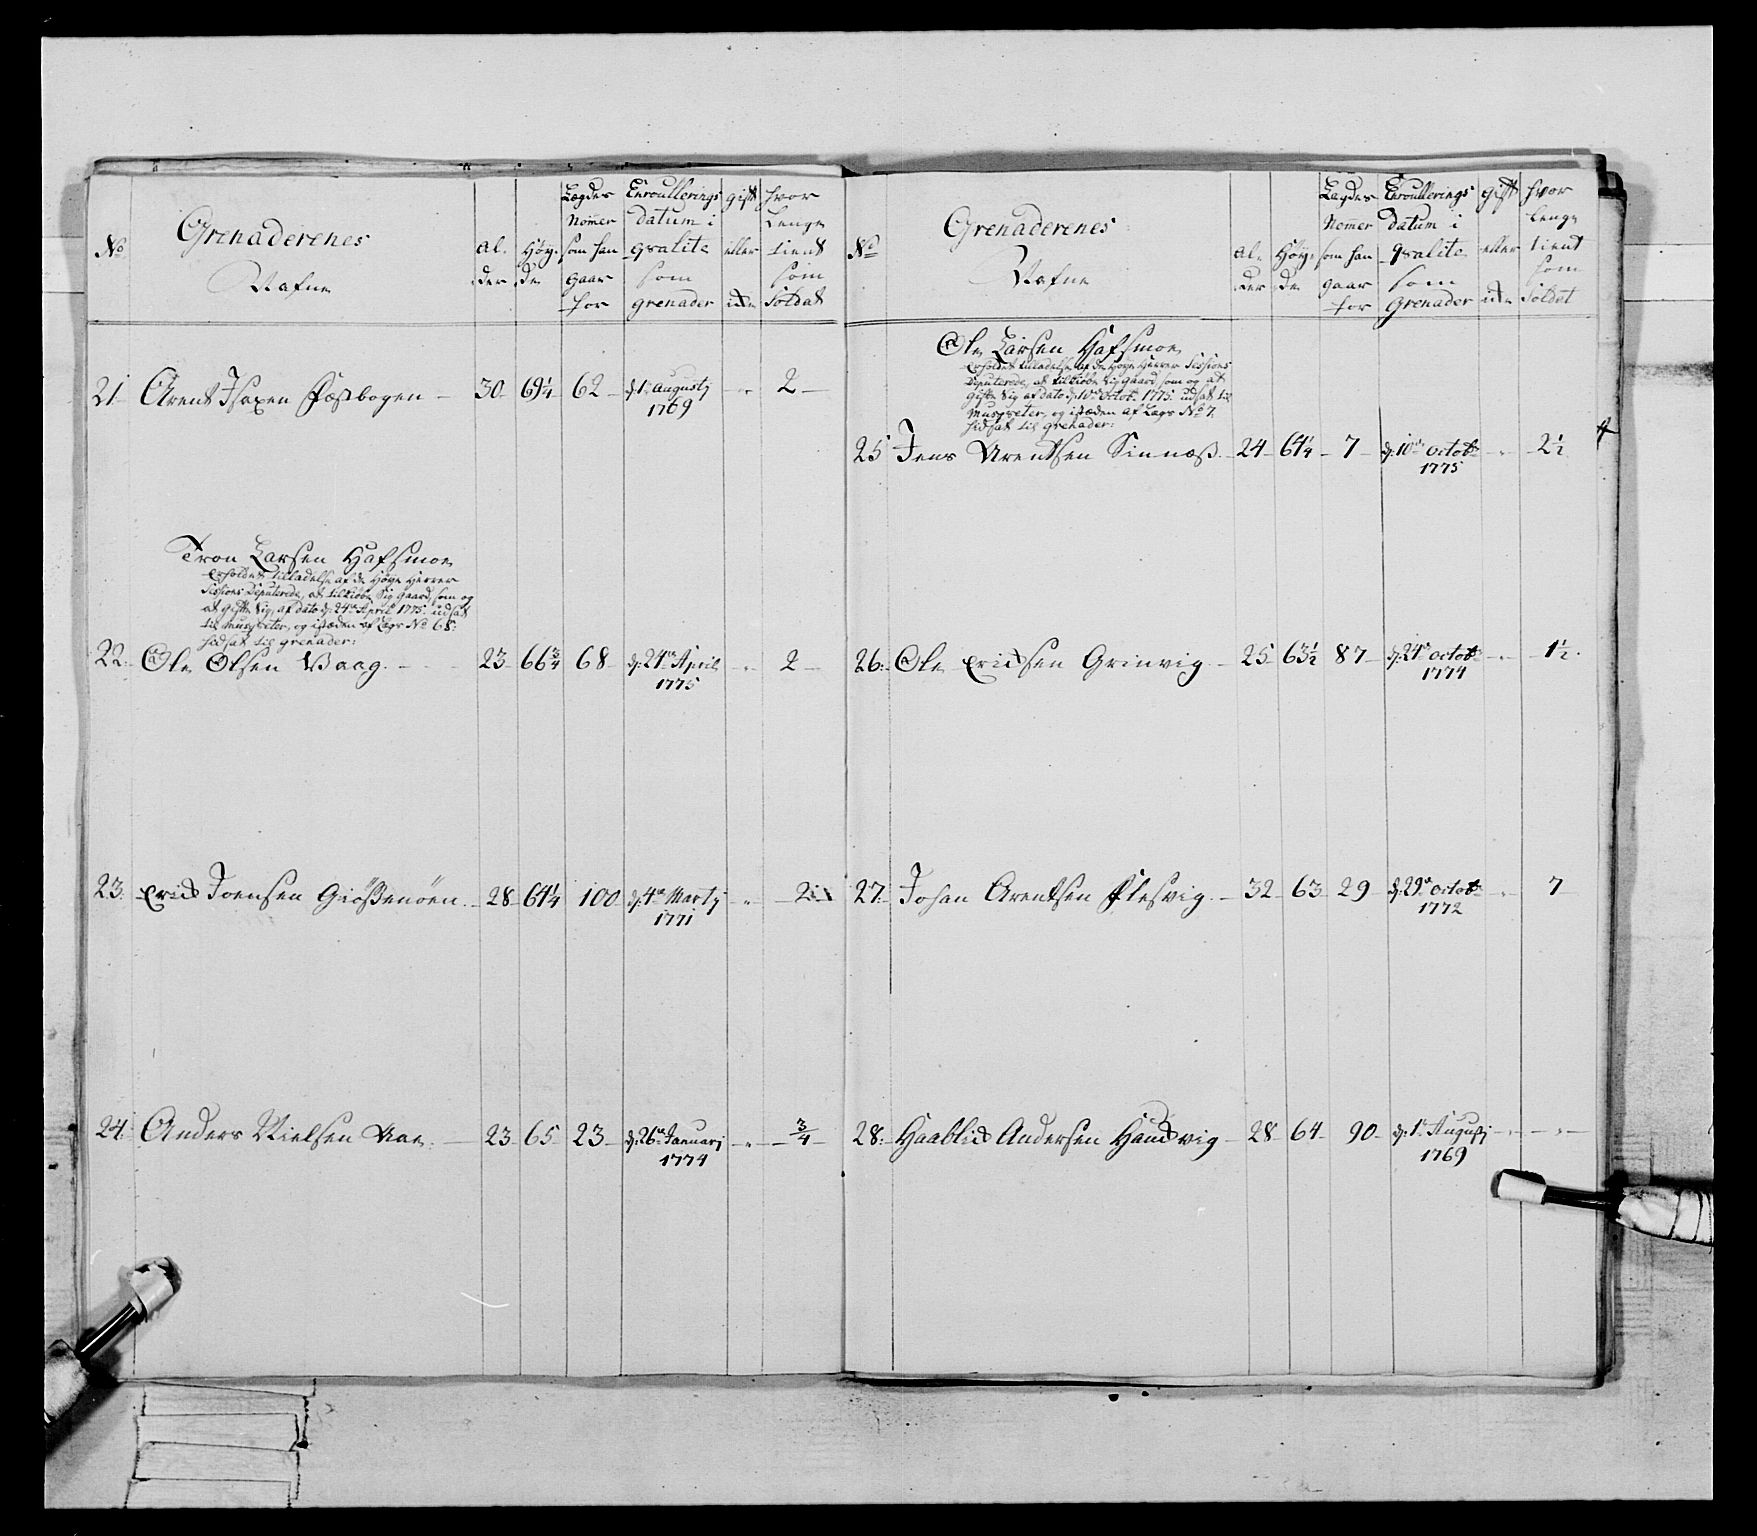 No
Grenaderenes
Nafne
al-
der
Høy-
de
Lægdes
Nomer
som han
gaar
for
Enroullerings
datum i
qvalite
som
grenader
gift
eller
ikke
hvor
lenge
tient
som
Soldat
21 Arent Isaxen Fæstbogen - 30 69¼ 62 - d: 1te augustij - „ - 2 -
1769
Tron Larsen Hafsmoe
Erholdet tilladelse af de Høye Herrer
Sissions Deputerede, at tilkiøbe Sig Gaard, som og
at gifte sig, af dato d: 24de April 1775. udsat
til Musqveter, og istæden af Legs No 68:
hidsat til grenader:
22. Ole Olsen Vaag. - 23 66¾ 68 - d: 24de April - „ - 2 -
1775
23. Erick Joensen Giössenöen. - 28 64¼ 100 d: 4de Martij - „ -
1771
24. Anders Nielsen Aae. - 23 65 23 - d: 26de Januarj - „ - ¾ -
1774
No
Grenaderenes
Nafne
al-
der
Høy-
de
Lægdes
Nomer
som han
gaar
for
Enroullerings
datum i
qvalite
som
Grenader
Gift
eller
ikke
hvor
lenge
tient
som
Soldat
Ole Larsen Hafsmoe
Erholdet tilladelse af de Høye Herrer Sissions
Deputerede, at tilkiøbe sig gaard, som og at
gifte sig af dato d: 10de Octob: 1775. udsat til
Musqveter, og istæden af Legs No 7.
hidsat til grenader:
25 Jens Arentsen Sinnæss. - 24 - 64¼ - 7 - d: 10de octob: - „ - 2½
1775
26. Ole Ericksen Grinvig. - 25 63½ 87 - d: 24de octob: - „ - 1½.
1774
27. Johan Arentsen Flesvig. - 32 - 63 - 29 - d: 29de octob: - „ - 7
1772
28. Haablick Andersen Handvig - 28 64 - 90 - d: 1te Augustj - „ - „ -
1769